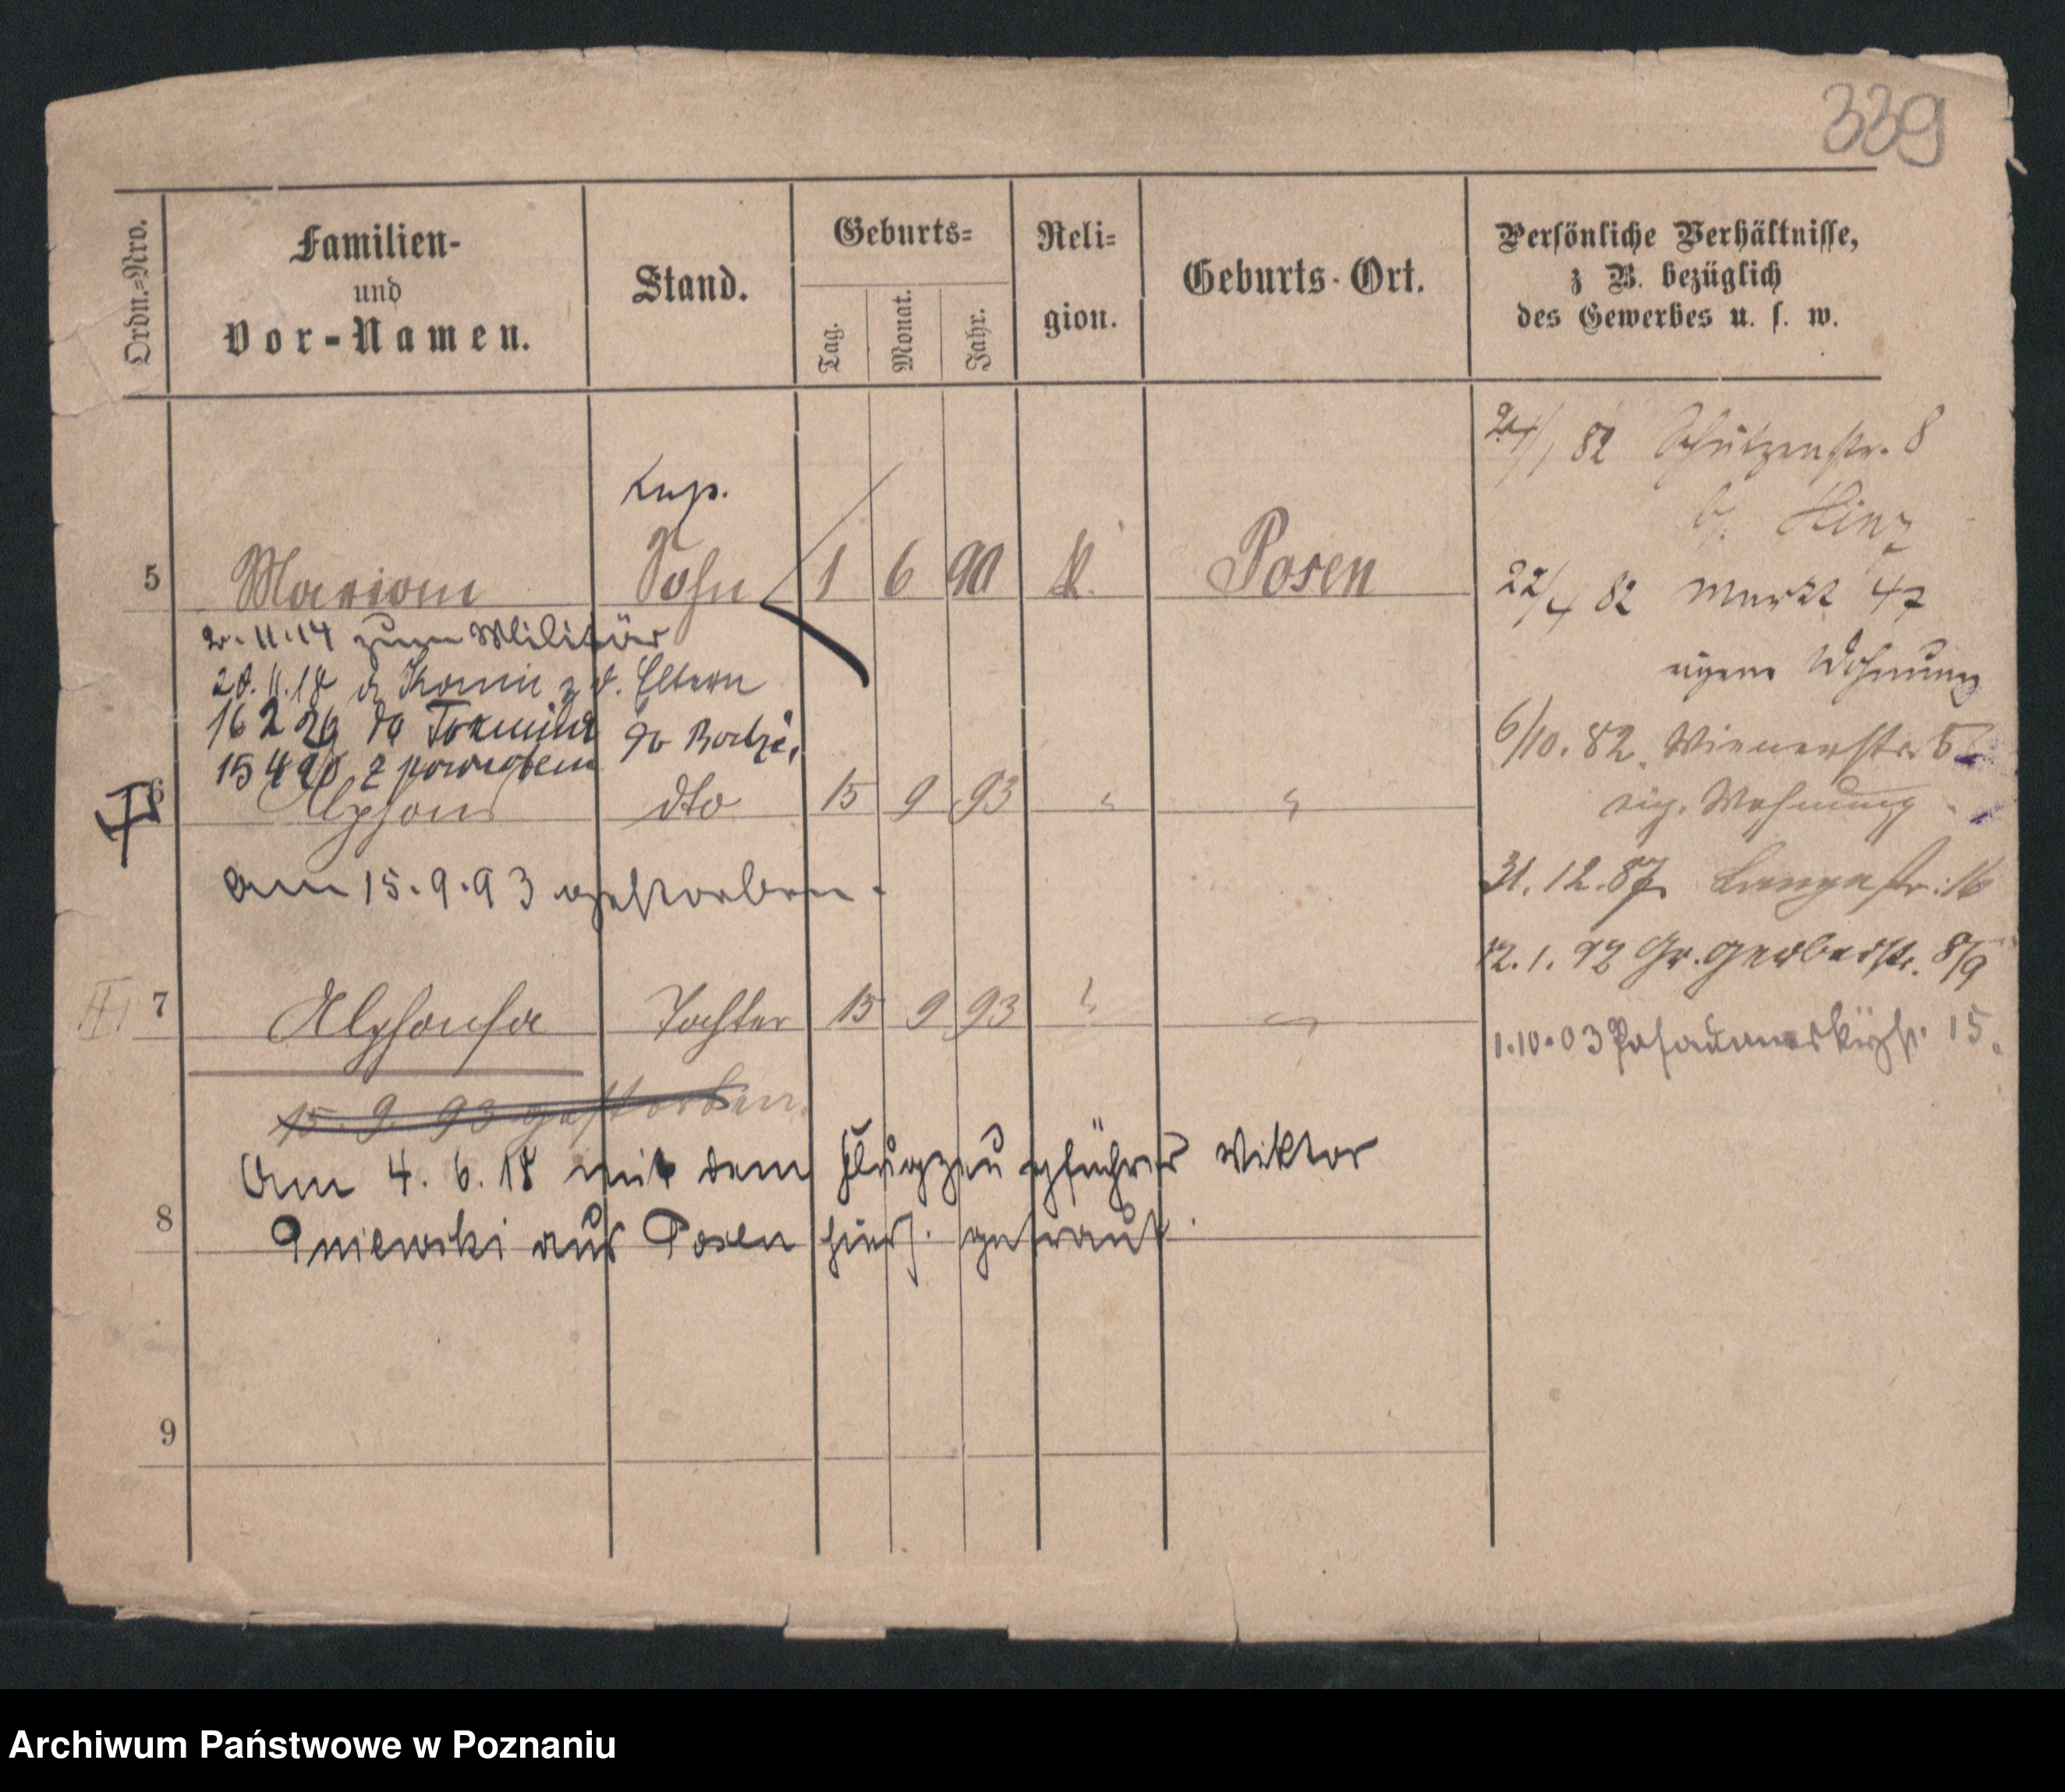 339
Ordn.=Nro.
Familien-
und
Vor-Namen.
Stand.
Geburts=
Tag.
Monat.
Jahr.
Reli=
gion.
Geburts-Ort.
Persönliche Verhältnisse,
z B. bezüglich
des Gewerbes u. s. w.
5 Marian Sohn 1 6 90 k. Posen
2.11.14 zum Militär
20.11.18 z. d. Eltern
16 2 20 do
15 4 20 z powrotem
6 Alphons dto 15 9 93 " "
am 15.9.93 gestorben.
7 Alphonsa Tochter 15 9 93 " "
15. 9. 93 gestorben.
Am 4. 6. 18 mit dem Flugzeugführer Viktor
8 Gniewski aus Posen hiers. getraut.
9
24/1 82 Schützenstr. 8
b. Hinz
22/4 82 Markt 47
eigene Wohnung
6/10. 82. Wienerstr. 5
eig. Wohnung
31. 12. 87 Langestr. 16
12. 1. 92 Gr. Gerberstr. 8/9
1.10.03 15.
Archiwum Państwowe w Poznaniu